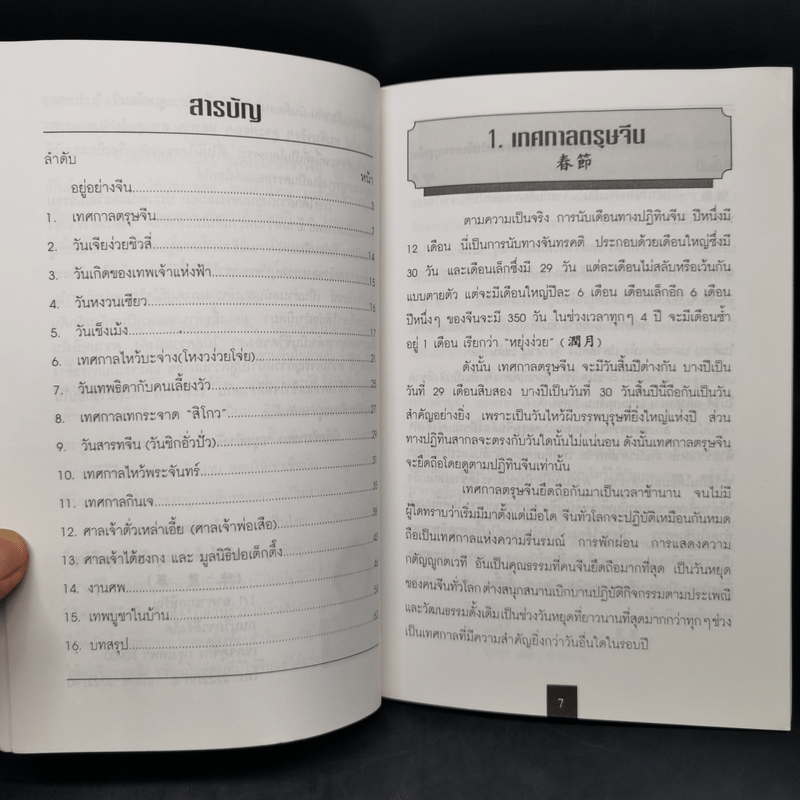 สารบัญ
ลำดับ
หน้า
อยู่อย่างจีน 3
1. เทศกาลตรุษจีน 7
2. วันเจียง่วยชิวสี่ 14
3. วันเกิดของเทพเจ้าแห่งฟ้า 15
4. วันหงวนเซียว 16
5. วันเช็งเม้ง 17
6. เทศกาลไหว้บะจ่าง(โหงวง่วยโจ่ย) 21
7. วันเทพธิดากับคนเลี้ยงวัว 25
8. เทศกาลเทกระจาด "สิโกว" 27
9. วันสารทจีน (วันชิกอั่วปั่ว) 29
10. เทศกาลไหว้พระจันทร์ 31
11. เทศกาลกินเจ 35
12. ศาลเจ้าตั่วเหล่าเอี้ย (ศาลเจ้าพ่อเสือ) 38
13. ศาลเจ้าไต้ฮงกง และ มูลนิธิปอเต็กตึ๊ง
14. งานศพ
15. เทพบูชาในบ้าน
16. บทสรุป
1. เทศกาลตรุษจีน
春節
ตามความเป็นจริง การนับเดือนทางปฏิทินจีน ปีหนึ่งมี
12 เดือน นี่เป็นการนับทางจันทรคติ ประกอบด้วยเดือนใหญ่ซึ่งมี
30 วัน และเดือนเล็กซึ่งมี 29 วัน แต่ละเดือนไม่สลับหรือเว้นกัน
แบบตายตัว แต่จะมีเดือนใหญ่ปีละ 6 เดือน เดือนเล็กอีก 6 เดือน
ปีหนึ่งๆ ของจีนจะมี 350 วัน ในช่วงเวลาทุกๆ 4 ปี จะมีเดือนซ้ำ
อยู่ 1 เดือน เรียกว่า "หยุ่งง่วย" (潤月)
ดังนั้น เทศกาลตรุษจีน จะมีวันสิ้นปีต่างกัน บางปีเป็น
วันที่ 29 เดือนสิบสอง บางปีเป็นวันที่ 30 วันสิ้นปีนี้ถือกันเป็นวัน
สำคัญอย่างยิ่ง เพราะเป็นวันไหว้ผีบรรพบุรุษที่ยิ่งใหญ่แห่งปี ส่วน
ทางปฏิทินสากลจะตรงกับวันใดนั้นไม่แน่นอน ดังนั้นเทศกาลตรุษจีน
จะยึดถือโดยดูตามปฏิทินจีนเท่านั้น
เทศกาลตรุษจีนยึดถือกันมาเป็นเวลาช้านาน จนไม่มี
ผู้ใดทราบว่าเริ่มมีมาตั้งแต่เมื่อใด จีนทั่วโลกจะปฏิบัติเหมือนกันหมด
ถือเป็นเทศกาลแห่งความรื่นรมณ์ การพักผ่อน การแสดงความ
กตัญญูกตเวที อันเป็นคุณธรรมที่คนจีนยึดถือมากที่สุด เป็นวันหยุด
ของคนจีนทั่วโลก ต่างสนุกสนานเบิกบานปฏิบัติกิจกรรมตามประเพณี
และวัฒนธรรมดั้งเดิมเป็นช่วงวันหยุดที่ยาวนานที่สุดมากกว่าทุกๆช่วง
เป็นเทศกาลที่มีความสำคัญยิ่งกว่าวันอื่นใดในรอบปี
7